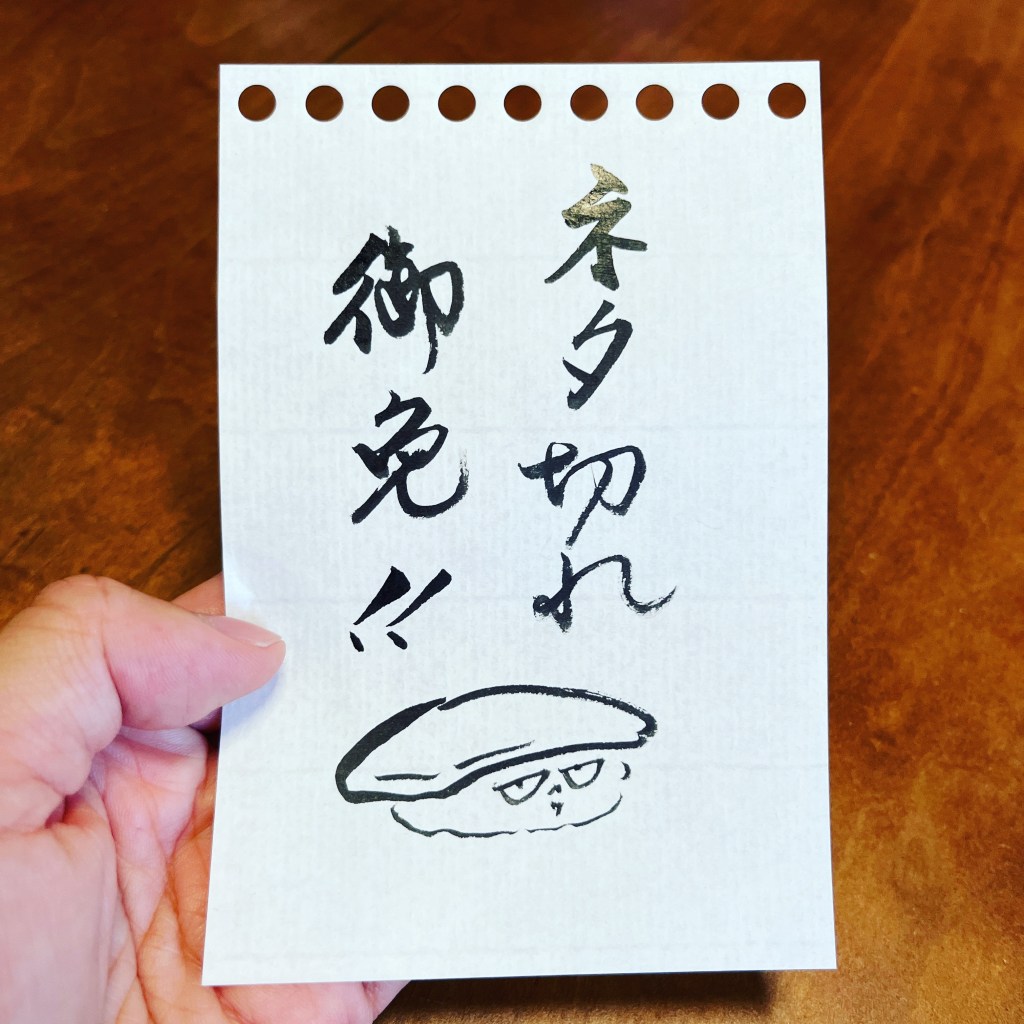 ネタ切れ
御免!!